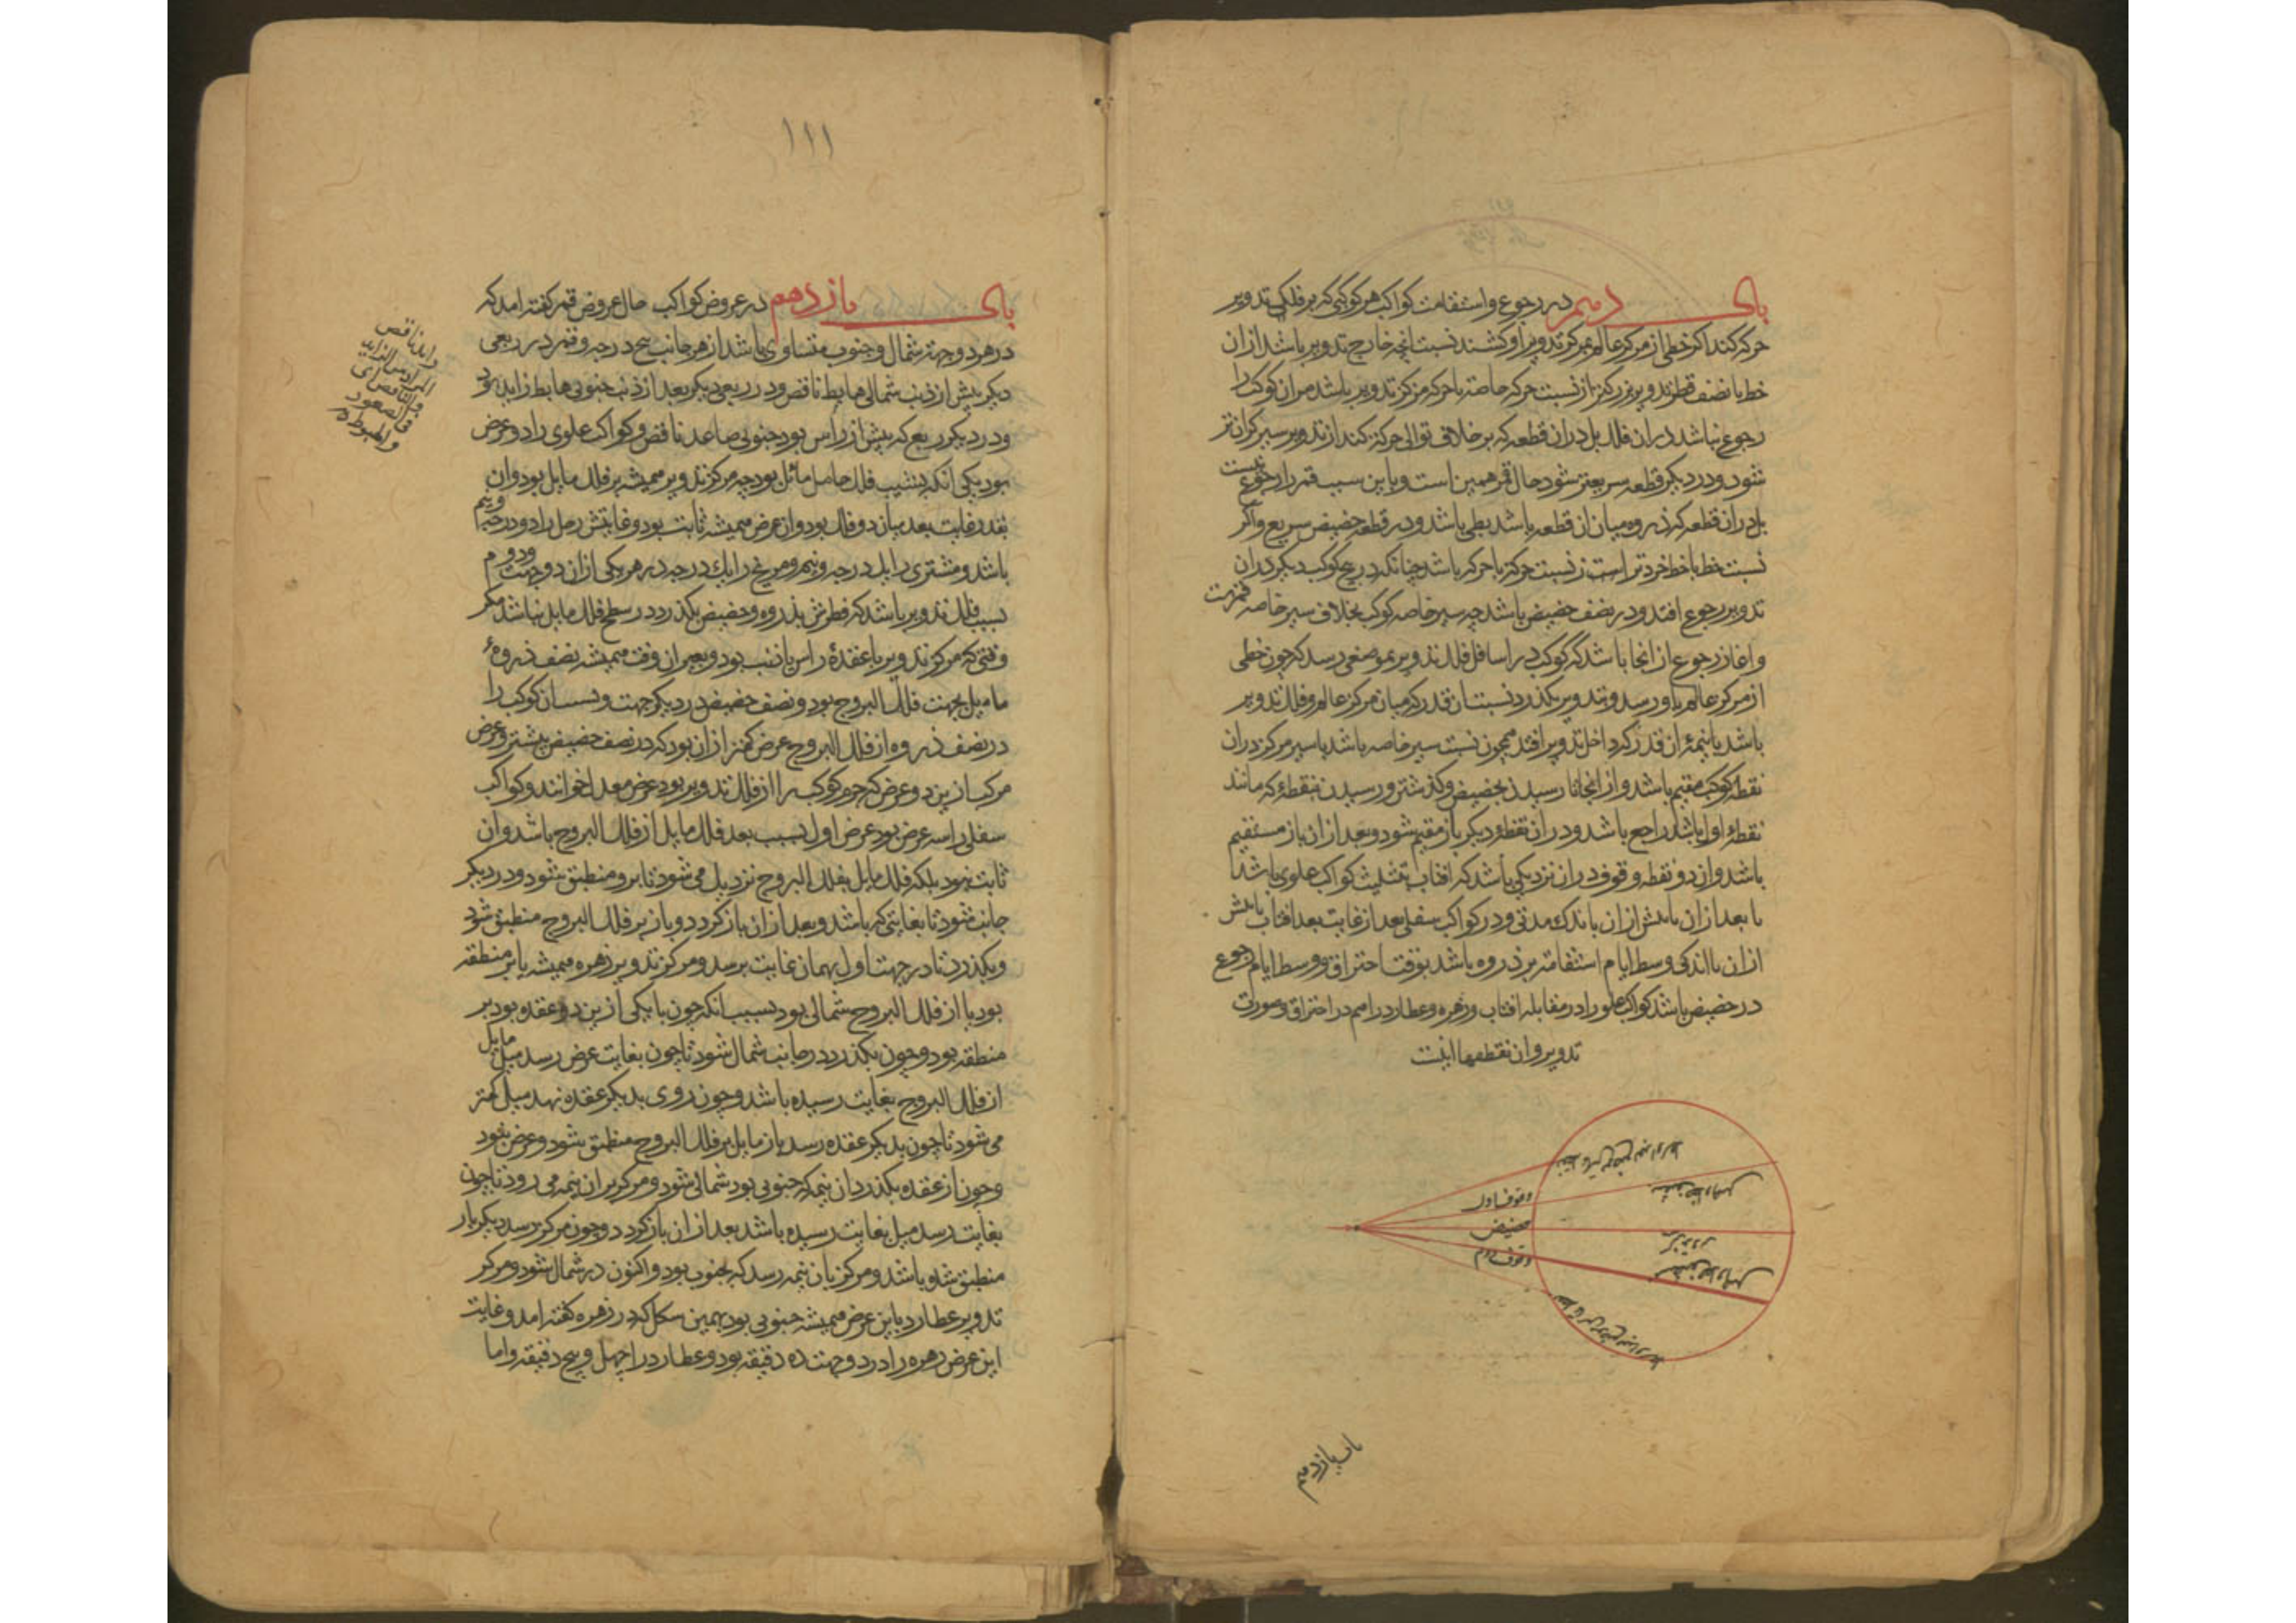 باب دهم در رجوع و استقامت کواکب هر کوکبی که بر فلک تدویر
حرکه کند اکر خطی از مرکز عالم بمرکز تدویر او کشند نسبت انچه خارج تدویر باشد ازان
خط با نصف قطر تدویر بزرکتر از نسبت حرکه خاصه با حرکه مرکز تدویر باشد مران کوکب را
رجوع نباشد دران فلک بل دران قطعه که بر خلاف توالی حرکه کند از تدویر سیرکران تر
شود و در دیکر قطعه سریعتر شود حال قمر همین است و باین سبب قمر را رجوع نیست
بل دران قطعه که ذروه میان ان قطعه باشد بطی باشد و در قطعه حضیض سریع و اکر
نسبت خط با خط خردتر است ز نسبت حرکه با حرکه باشد چنانکه در پنج کوکب دیکر دران
تدویر رجوع افتد و در نصف حضیض باشد چه سیر خاصه کوکب بخلاف سیر خاصه قمرست
و اغاز رجوع از انجا باشد که کوکب در اسافل فلک تدویر بموضعی رسد که چون خطی
از مرکز عالم باو رسد و تدویر بکذرد نسبت ان قدر که میان مرکز عالم و فلک تدویر
باشد با نیمهٔ ان قدر که داخل تدویر افتد همچون نسبت سیر خاصه باشد با سیر مرکز دران
نقطه کوکب مقیم باشد و از انجا تا رسیدن بحضیض و کذشتن و رسیدن بنقطهٔ که مانند
نقطهٔ اول باشد راجع باشد و دران نقطهٔ دیکر باز مقیم شود و بعد ازان باز مستقیم
باشد و این دو نقطه وقوف دران نزدیکی باشد که افتاب بتثلیث کواکب علوی باشد
یا بعد ازان یا پیش ازان باندک مدتی و در کواکب سفلی بعد از غایت بعد افتاب یا پیش
ازان باندکی و وسط ایام استقامت بر ذروه باشد بوقت احتراق و وسط ایام رجوع
در حضیض باشد کواکب علو را در مقابله افتاب و زهره و عطارد را هم در احتراق و صورت
تدویر و ان نقطها اینست
وقوف اول
حضیض
وقوف دوم
مرکز تدویر
باب یازدهم
۱۱۱
باب یازدهم در عروض کواکب حال عروض قمر کفته امد که
در هر دو جهة شمال و جنوب متساوی باشد از هر جانب پنج درجه و قمر در ربعی
دیکر پیش از ذنب شمالی هابط ناقص و در ربعی دیکر بعد از ذنب جنوبی هابط زاید بود
و در دیکر ربع که پیش از راس بود جنوبی صاعد ناقص و کواکب علوی را دو عرض
بود یکی انکه بسبب فلک حامل مائل بود چه مرکز تدویر همیشه بر فلک مایل بود و ان
بقدر غایت بعد میان دو فلک بود و ان عرض همیشه ثابت بود و غایتش زحل را دو درجه و نیم
باشد و مشتری را یک درجه و نیم و مریخ را یک درجه در هر یکی از ان دو جهت و دوم
بسبب فلک تدویر باشد که قطرش بذروه و حضیض بکذرد در سطح فلک مایل نباشد مکر
وقتی که مرکز تدویر با عقدهٔ راس یا ذنب بود و بغیر ان وقت همیشه نصف ذروهٔ
مایل بجهت فلک البروج بود و نصف حضیض در دیکر جهت و بسبب ان کوکب را
در نصف ذروه از فلک البروج عرض کمتر ازان بود که در نصف حضیض بیشتر و عرض
مرکب ازین دو عرض که جرم کوکب را از فلک تدویر بود عرض معدل خوانند و کواکب
سفلی را سه عرض بود عرض اول بسبب بعد فلک مایل از فلک البروج باشد و ان
ثابت نبود بلکه فلک مایل بفلک البروج نزدیک می شود تا برو منطبق شود و در دیکر
جانب شود تا بغایتی که باشد و بعد ازان باز کردد و باز بر فلک البروج منطبق شود
و بکذرد تا در جهت اول بهمان غایت برسد و مرکز تدویر زهره همیشه یا بر منطقه
بود یا از فلک البروج شمالی بود بسبب انکه چون با یکی ازین دو عقده بود بر
منطقه بود و چون بکذرد در جانب شمال شود تا چون بغایت عرض رسد میل مایل
از فلک البروج بغایت رسیده باشد و چون روی بدیکر عقده نهد میل کمتر
می شود تا چون بدیکر عقده رسد باز مایل بر فلک البروج منطبق شود و عرض نبود
و چون از عقده بکذرد ان نیمه که جنوبی بود شمالی شود و مرکز بران نیمه می رود تا چون
بغایت رسد میل بغایت رسیده باشد بعد ازان باز کردد و چون مرکز برسد دیکر بار
منطبق شده باشد و مرکز بان نیمه رسد که جنوب بود و اکنون در شمال شود و مرکز
تدویر عطارد باین عرض همیشه جنوبی بود بهمین سکل که در زهره کفته امد و غایت
این عرض زهره را در دو جهت ده دقیقه بود و عطارد را چهل و پنج دقیقه و اما
المراد من الزاید
والناقص ای
فی الصعود
والهبوط